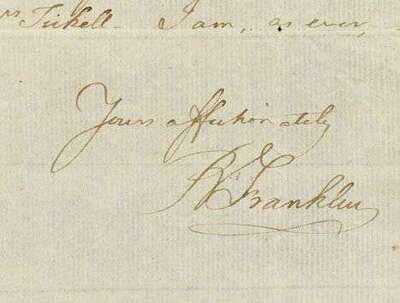 Mrs Tickell - I am, as ever,
Yours affectionately
B Franklin